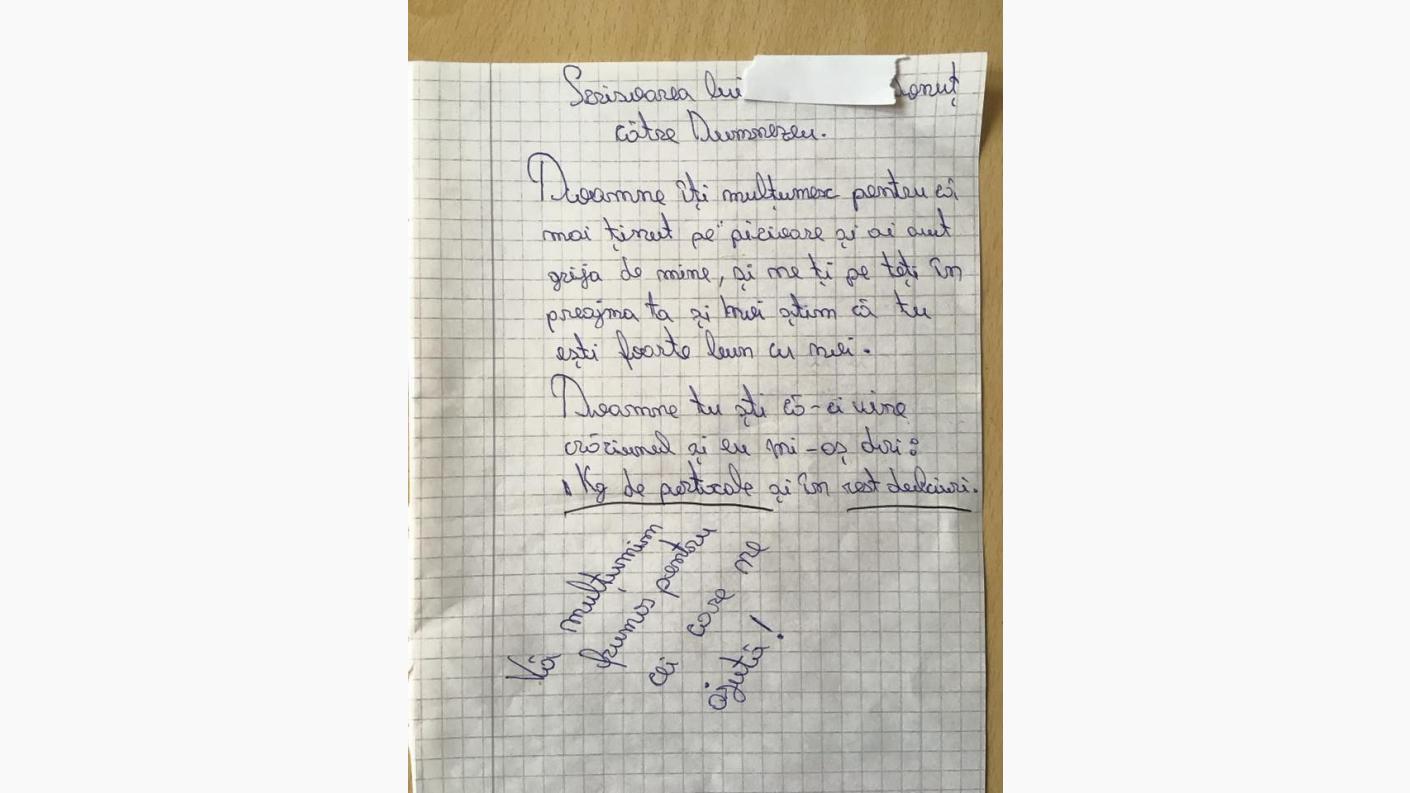 Scrisoarea lui Ionuț
către Dumnezeu.
Doamne îți mulțumesc pentru că
mai ținut pe picioare și ai aut
grija de mine, și ne ți pe toți în
preajma ta și noi știm că tu
ești foarte bun cu noi.
Doamne tu ști că-ci vine
crăciunul și eu mi-aș dori:
1 Kg de portocale și în rest dulciuri.
Vă mulțumim
frumos pentru
cei care ne
ajută!